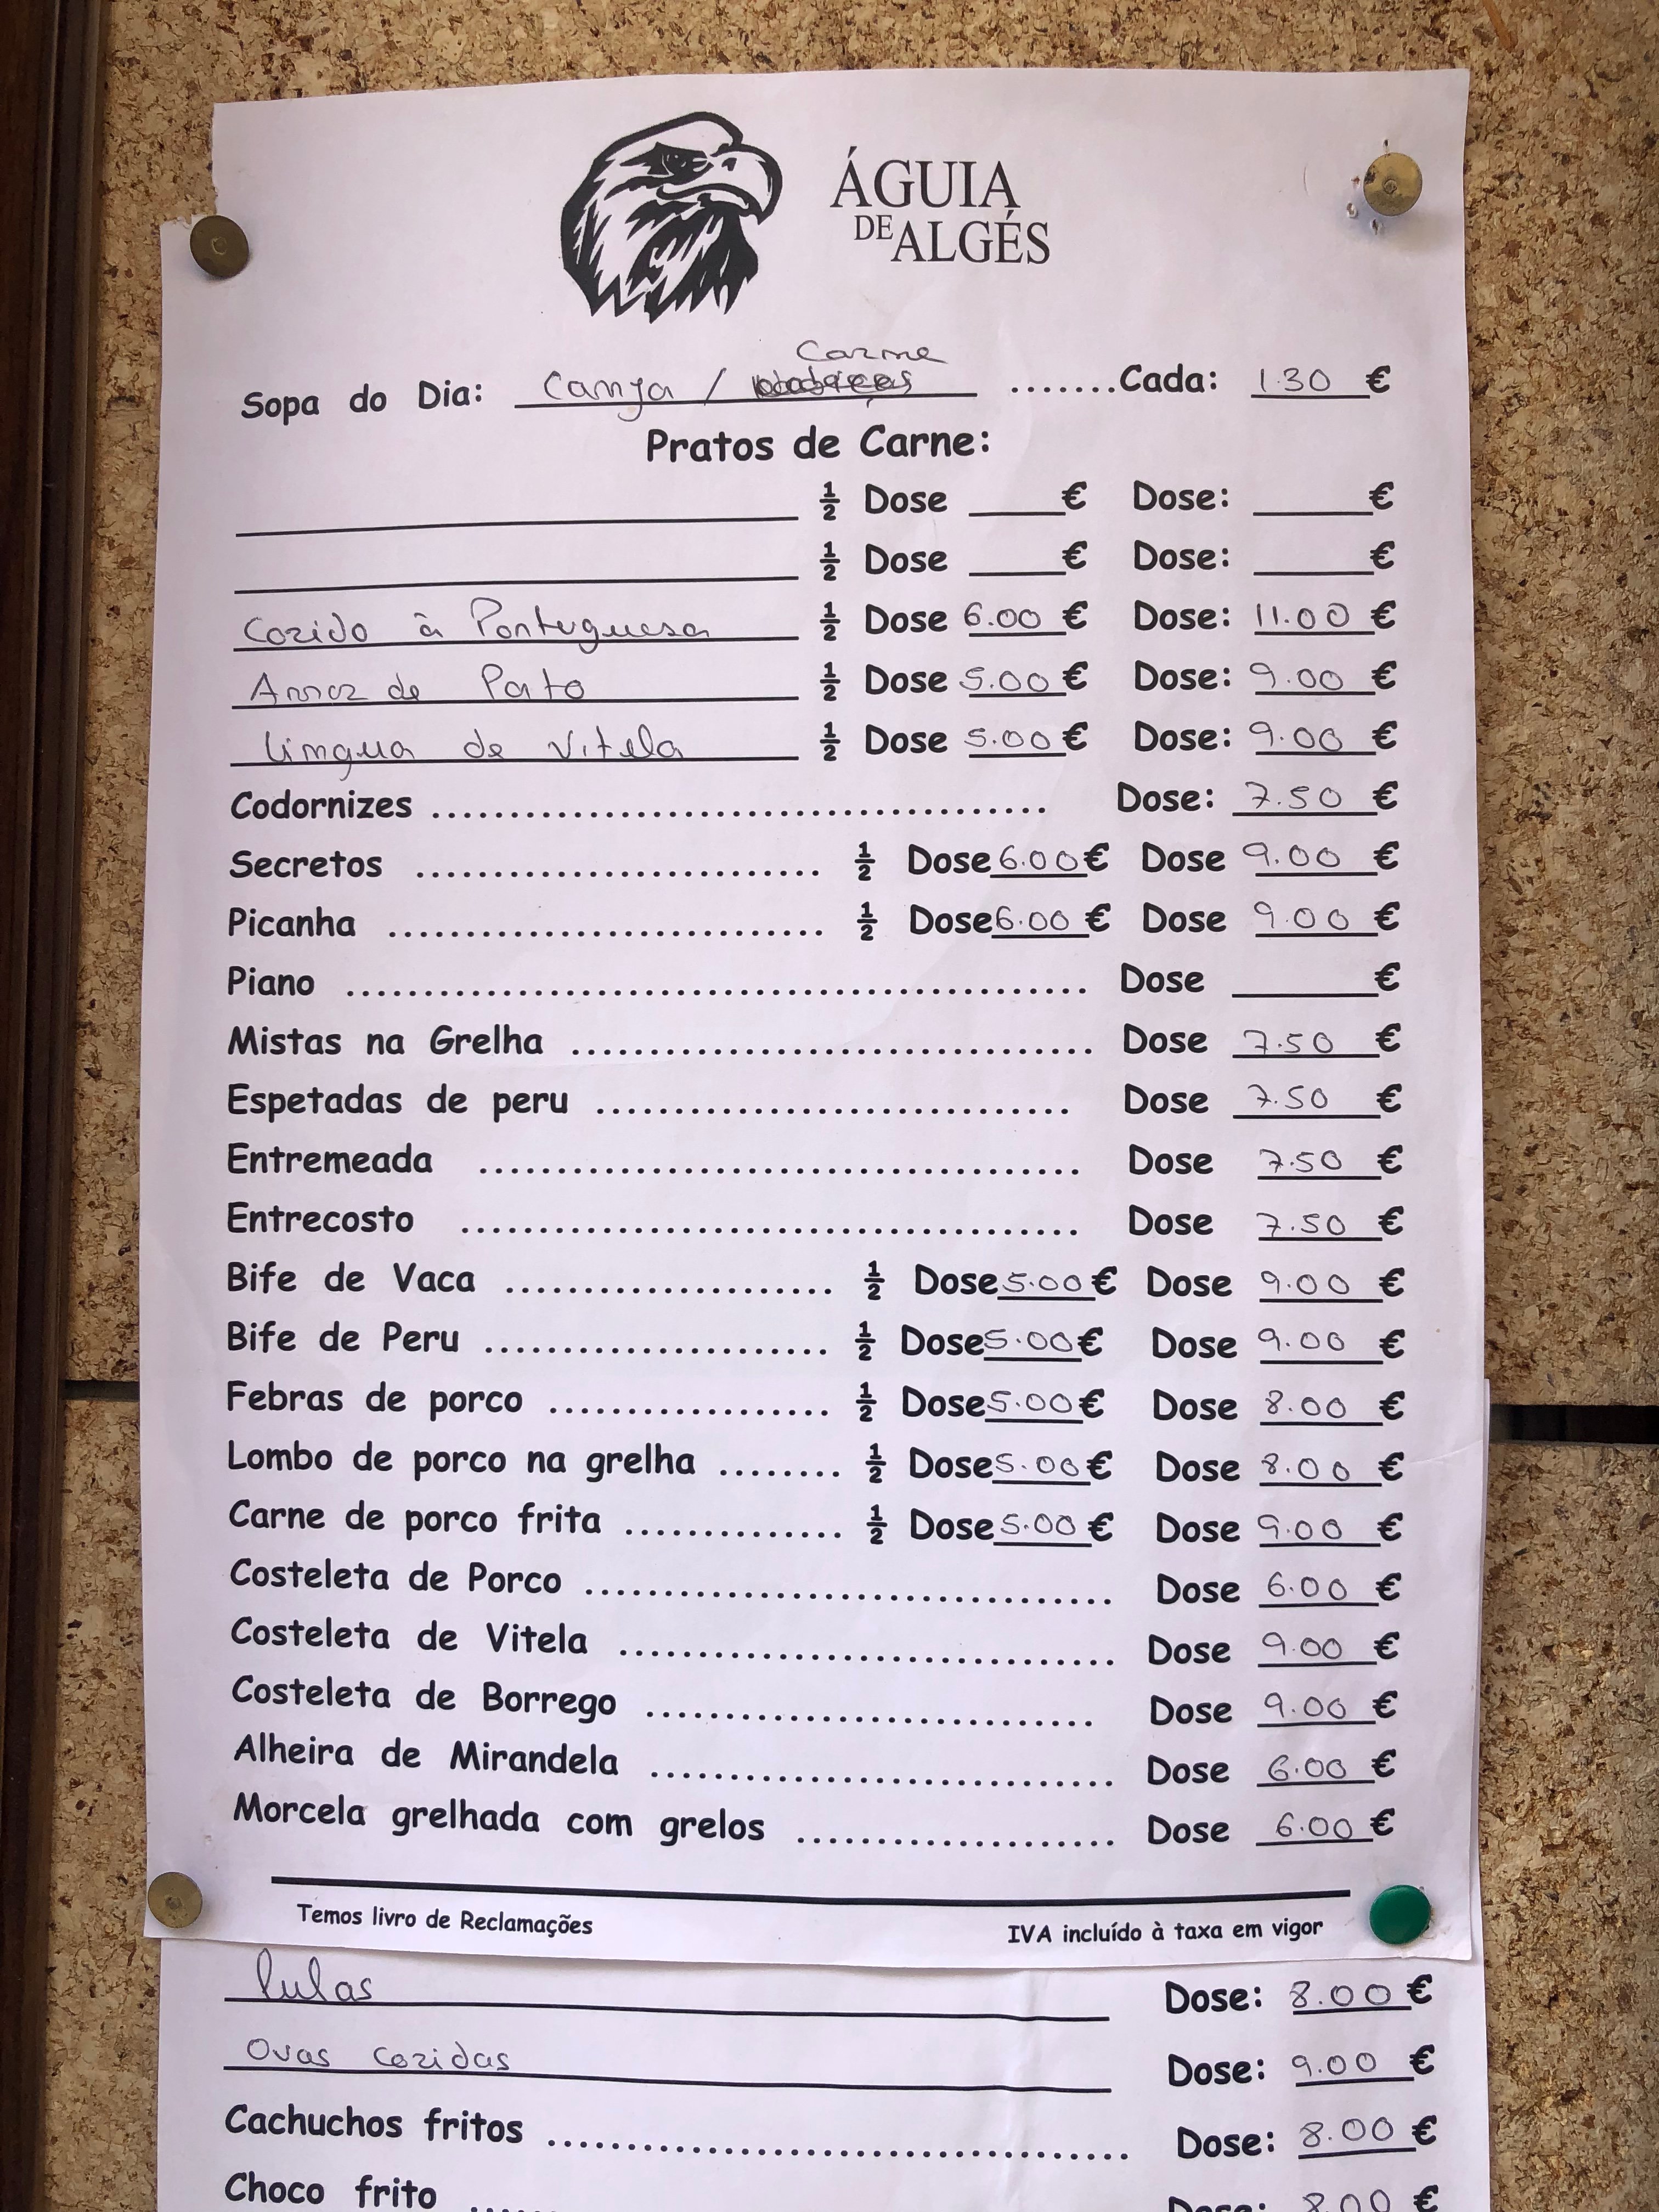 ÁGUIA
DE ALGÉS
Carne
Sopa do Dia: Canja / .......Cada: 1.30 €
Pratos de Carne:
½ Dose ____€ Dose: ____€
½ Dose ____€ Dose: ____€
Cozido à Portuguesa ½ Dose 6.00 € Dose: 11.00 €
Arroz de Pato ½ Dose 5.00 € Dose: 9.00 €
Língua de Vitela ½ Dose 5.00 € Dose: 9.00 €
Codornizes ........................................ Dose: 7.50 €
Secretos ............................... ½ Dose 6.00 € Dose 9.00 €
Picanha ................................. ½ Dose 6.00 € Dose 9.00 €
Piano ......................................................... Dose ____€
Mistas na Grelha ........................................ Dose 7.50 €
Espetadas de peru ..................................... Dose 7.50 €
Entremeada .............................................. Dose 7.50 €
Entrecosto ................................................ Dose 7.50 €
Bife de Vaca ......................... ½ Dose 5.00 € Dose 9.00 €
Bife de Peru .......................... ½ Dose 5.00 € Dose 9.00 €
Febras de porco ...................... ½ Dose 5.00 € Dose 8.00 €
Lombo de porco na grelha ........ ½ Dose 5.00 € Dose 8.00 €
Carne de porco frita ................. ½ Dose 5.00 € Dose 9.00 €
Costeleta de Porco ......................................... Dose 6.00 €
Costeleta de Vitela ...................................... Dose 9.00 €
Costeleta de Borrego ................................... Dose 9.00 €
Alheira de Mirandela .................................... Dose 6.00 €
Morcela grelhada com grelos ......................... Dose 6.00 €
Temos livro de Reclamações IVA incluído à taxa em vigor
lulas Dose: 8.00 €
Ovas cozidas Dose: 9.00 €
Cachuchos fritos .............................................. Dose: 8.00 €
Choco frito ..... Dose: 8.00 €